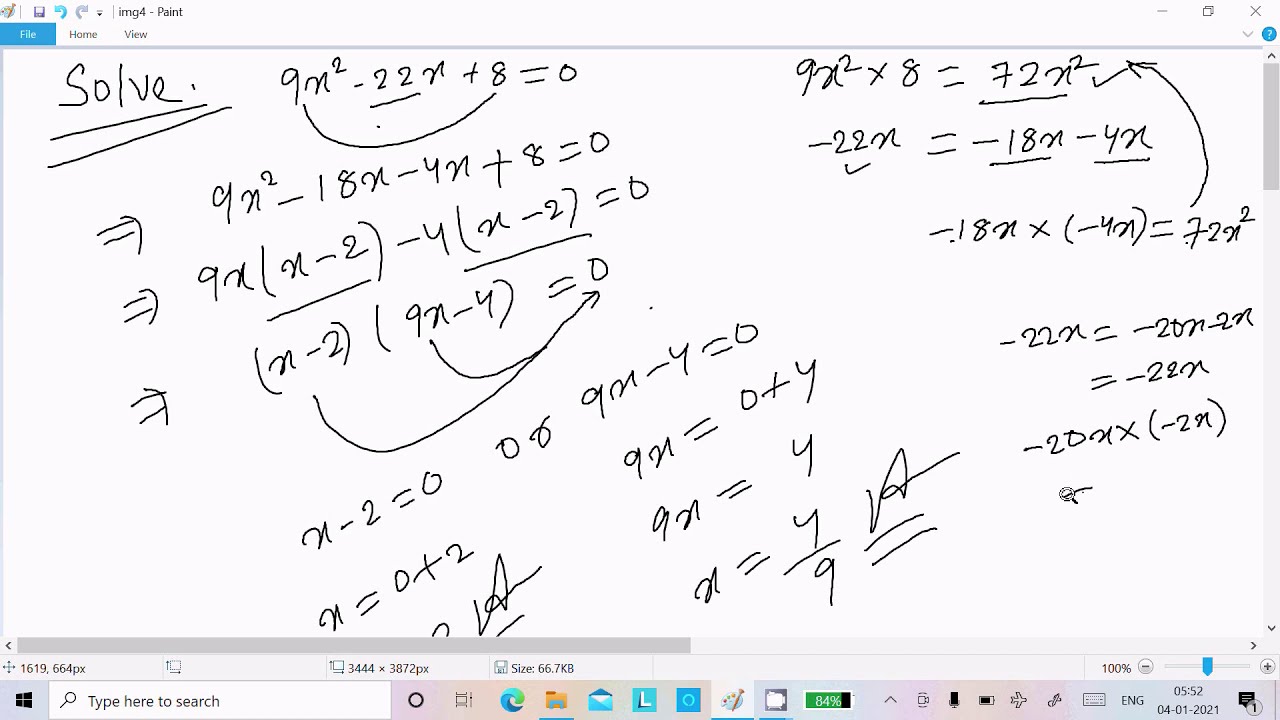 img4 - Paint
File Home View
Solve. 9x² - 22x + 8 = 0
⇒ 9x² - 18x - 4x + 8 = 0
⇒ 9x(x-2) - 4(x-2) = 0
⇒ (x-2)(9x-4) = 0
x-2 = 0 or 9x-4 = 0
x = 0+2
9x = 0+4
9x = 4
x = 4/9
9x² × 8 = 72x²
-22x = -18x - 4x
-18x × (-4x) = 72x²
-22x = -20x-2x
= -22x
-20x × (-2x)
1619, 664px 3444 × 3872px Size: 66.7KB 100%
Type here to search 84% ENG 05:52
04-01-2021